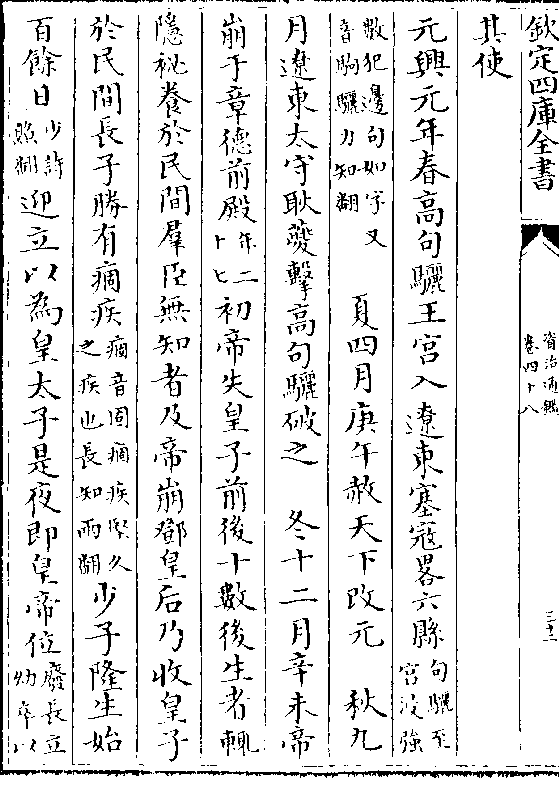 欽定四庫全書
資治通鑑
卷四十八
三十二
其使
元興元年春高句驪王宮入遼東塞寇畧六縣句驪至宮浸強
數犯邊句如字又音駒驪力知翻 夏四月庚午赦天下改元 秋九
月遼東太守耿夔擊高句驪破之 冬十二月辛未帝
崩于章德前殿年二十七初帝失皇子前後十數後生者輒
隱祕養於民間羣臣無知者及帝崩鄧皇后乃收皇子
於民間長子勝有痼疾痼音固痼疾堅久之疾也長知兩翻少子隆生始
百餘日少詩照翻迎立以為皇太子是夜即皇帝位廢長立幼卒以